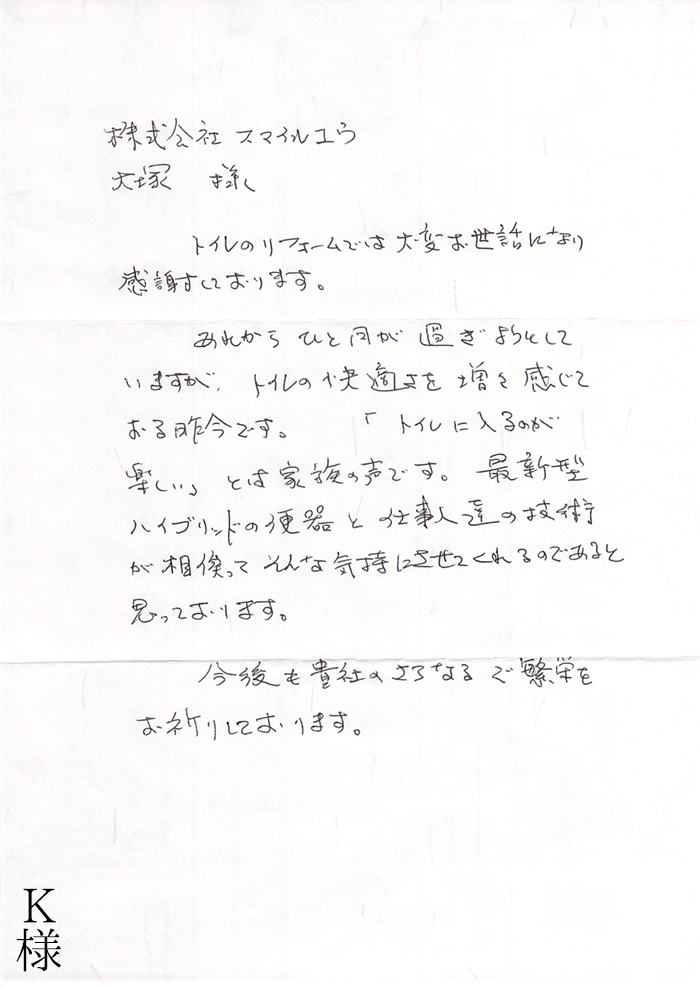 株式会社 スマイルユウ
大塚 様
トイレのリフォームでは大変お世話になり
感謝しております。
あれからひと月が過ぎようとして
いますが、トイレの快適さを増々感じて
おる昨今です。 「トイレに入るのが
楽しい」とは家族の声です。最新型
ハイブリッドの便器と仕事人達の技術
が相俟ってそんな気持にさせてくれるのであると
思っております。
今後も貴社のさらなるご繁栄を
お祈りしております。
K
様